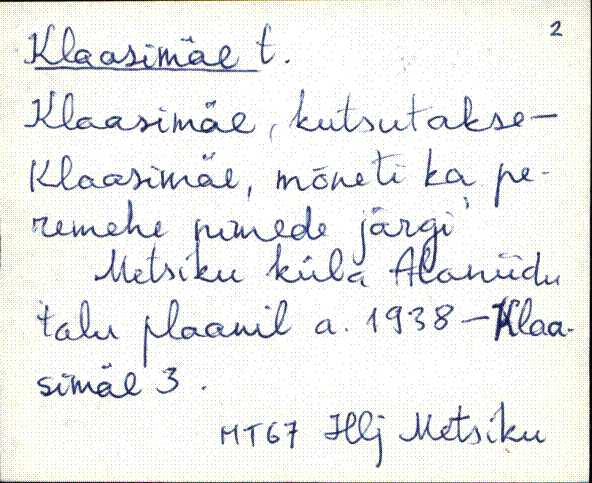 2
Klaasimäe t.
Klaasimäe, kutsutakse -
Klaasimäe, mõneti ka pe-
remehe nimede järgi
Metsiku küla Alaniidu
talu plaanil a. 1938 - Klaa-
simäe 3.
MT67 Hlj Metsiku